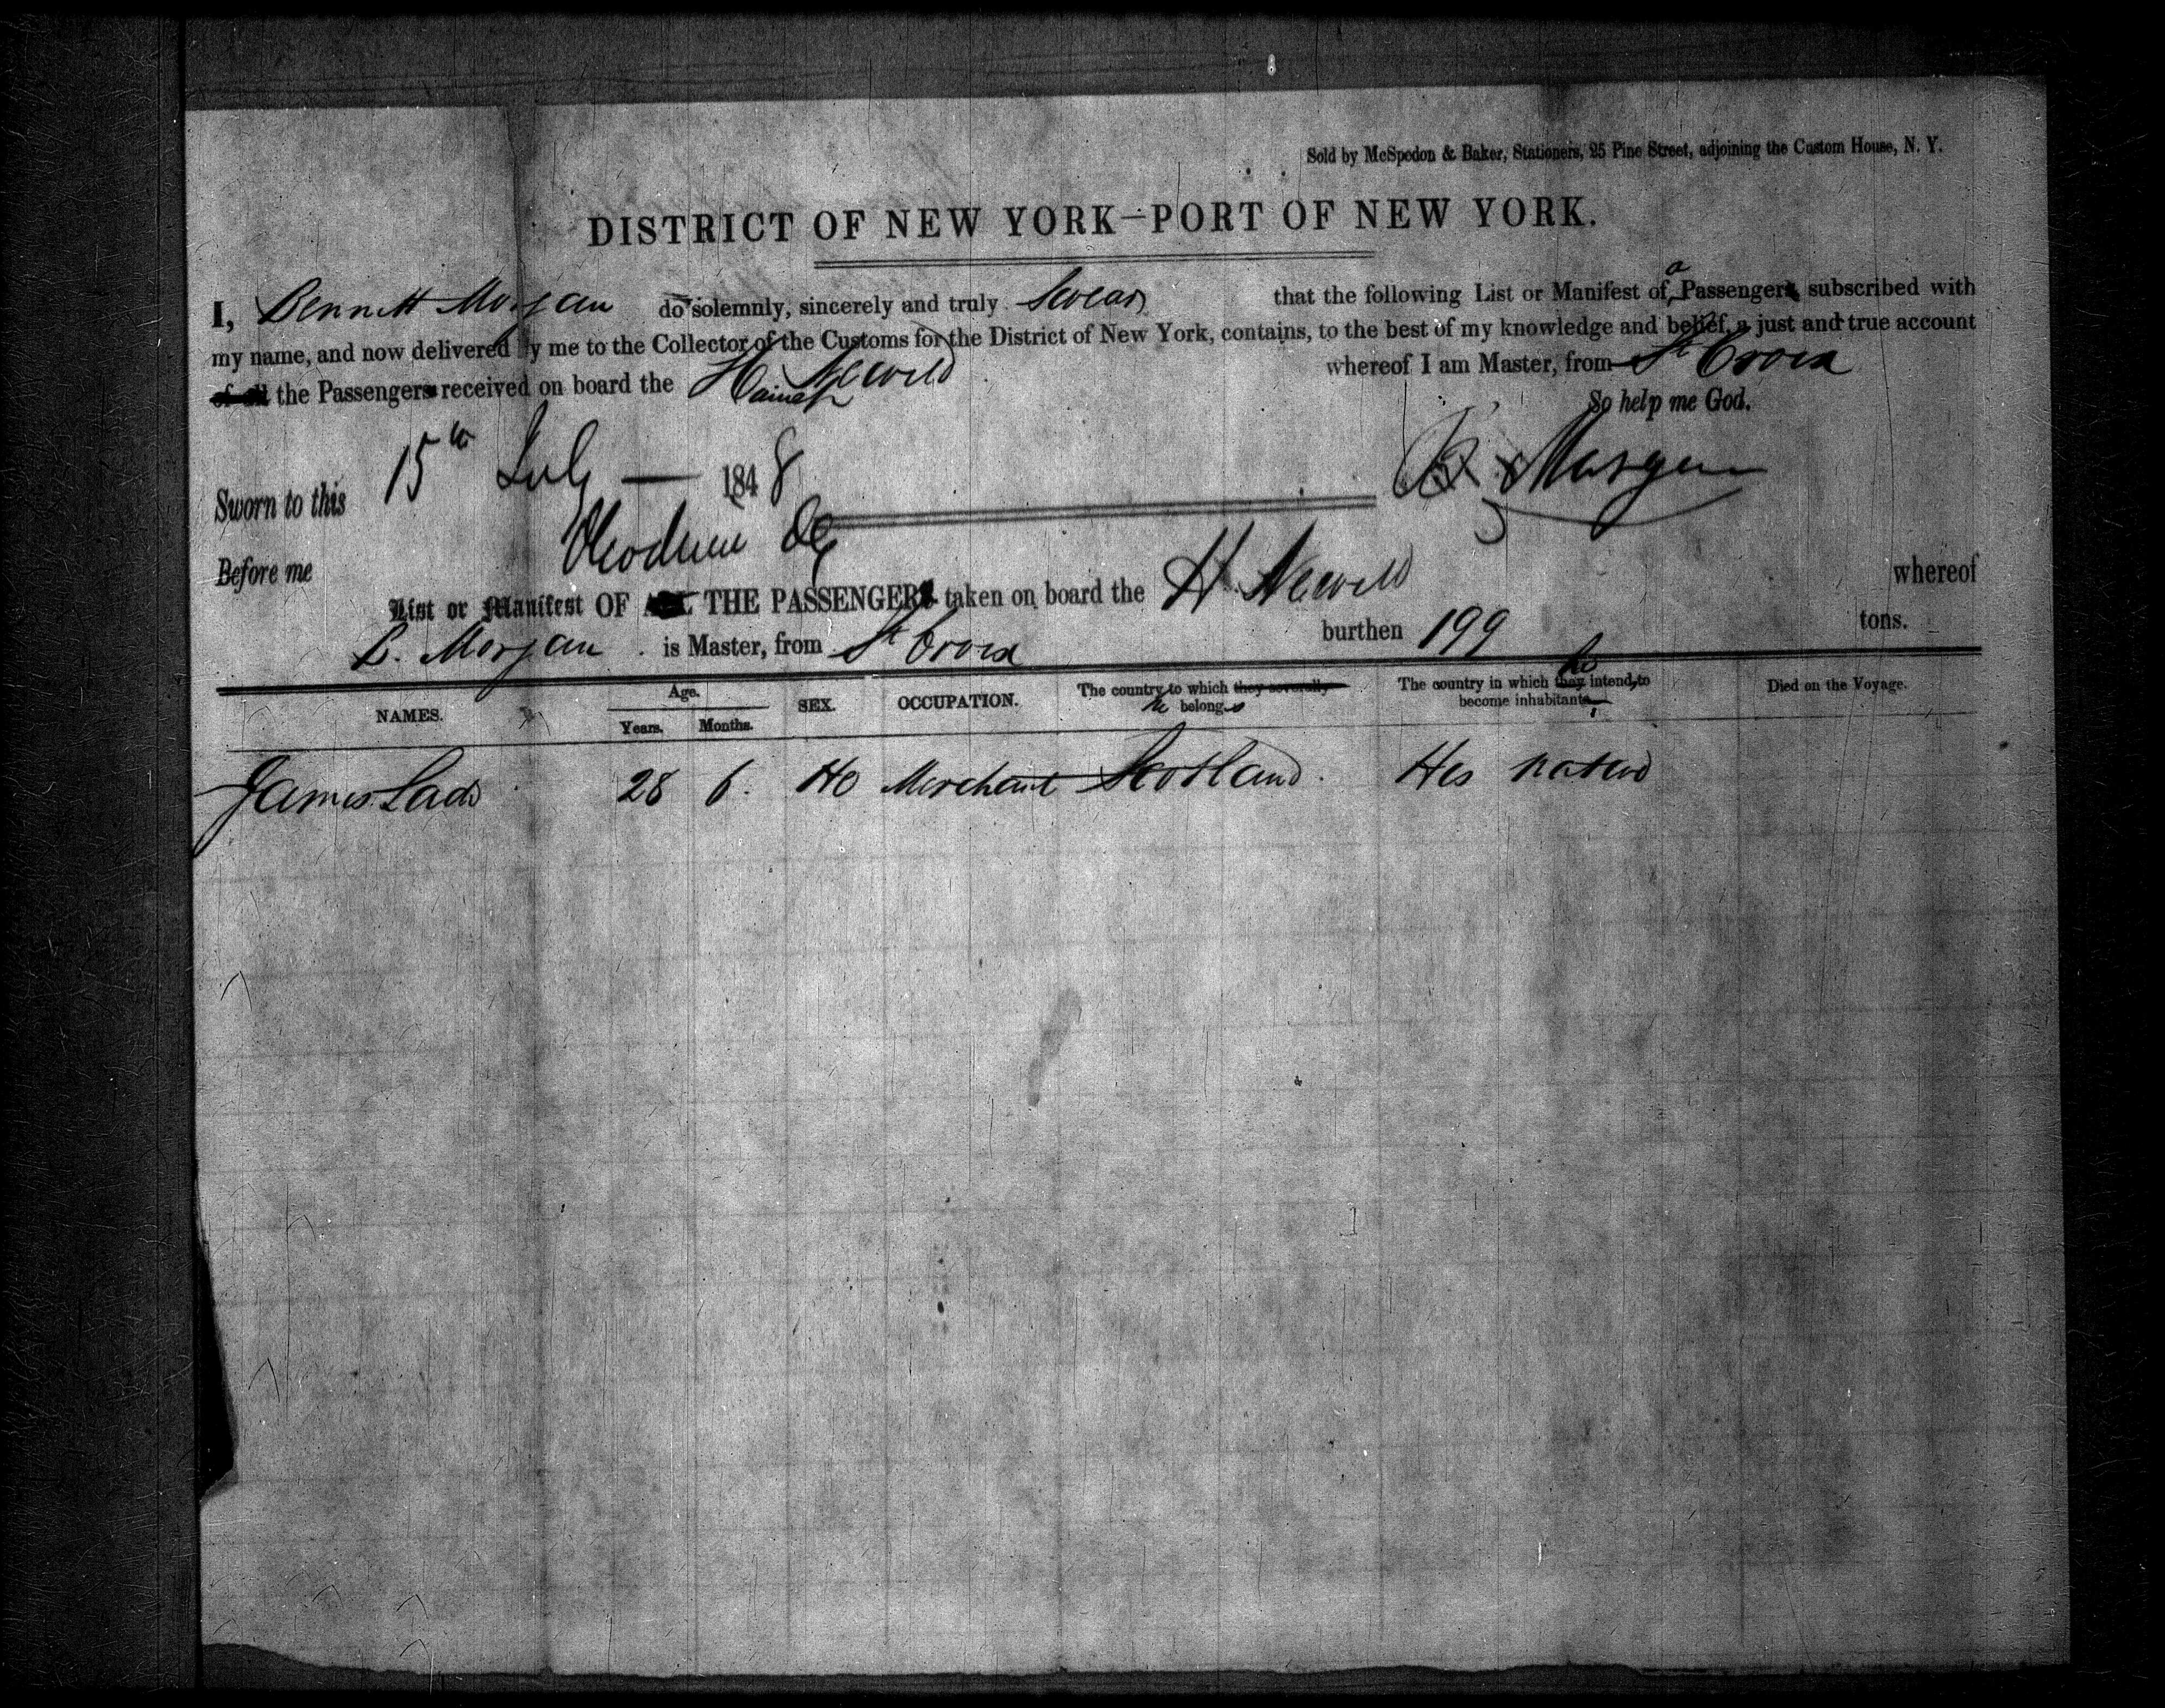 Sold by McSpedon & Baker, Stationers, 25 Pine Street, adjoining the Custom House, N. Y.
DISTRICT OF NEW YORK—PORT OF NEW YORK.
I, Bennett Morgan do solemnly, sincerely and truly Swear that the following List or Manifest of a Passenger subscribed with
my name, and now delivered by me to the Collector of the Customs for the District of New York, contains, to the best of my knowledge and belief, a just and true account
of all the Passengers received on board the Hannah Newell whereof I am Master, from St Croix
So help me God.
Sworn to this 15th July — 1848 B. Morgan
Before me
List or Manifest OF ALL THE PASSENGERS taken on board the H. Newell whereof
B. Morgan is Master, from St Croix burthen 199 tons.
NAMES. Age. Years. Months. SEX. OCCUPATION. The country to which they severally he belongs The country in which they he intend to become inhabitants. Died on the Voyage.
James Lads 28 6. He Merchant Scotland. His nativ